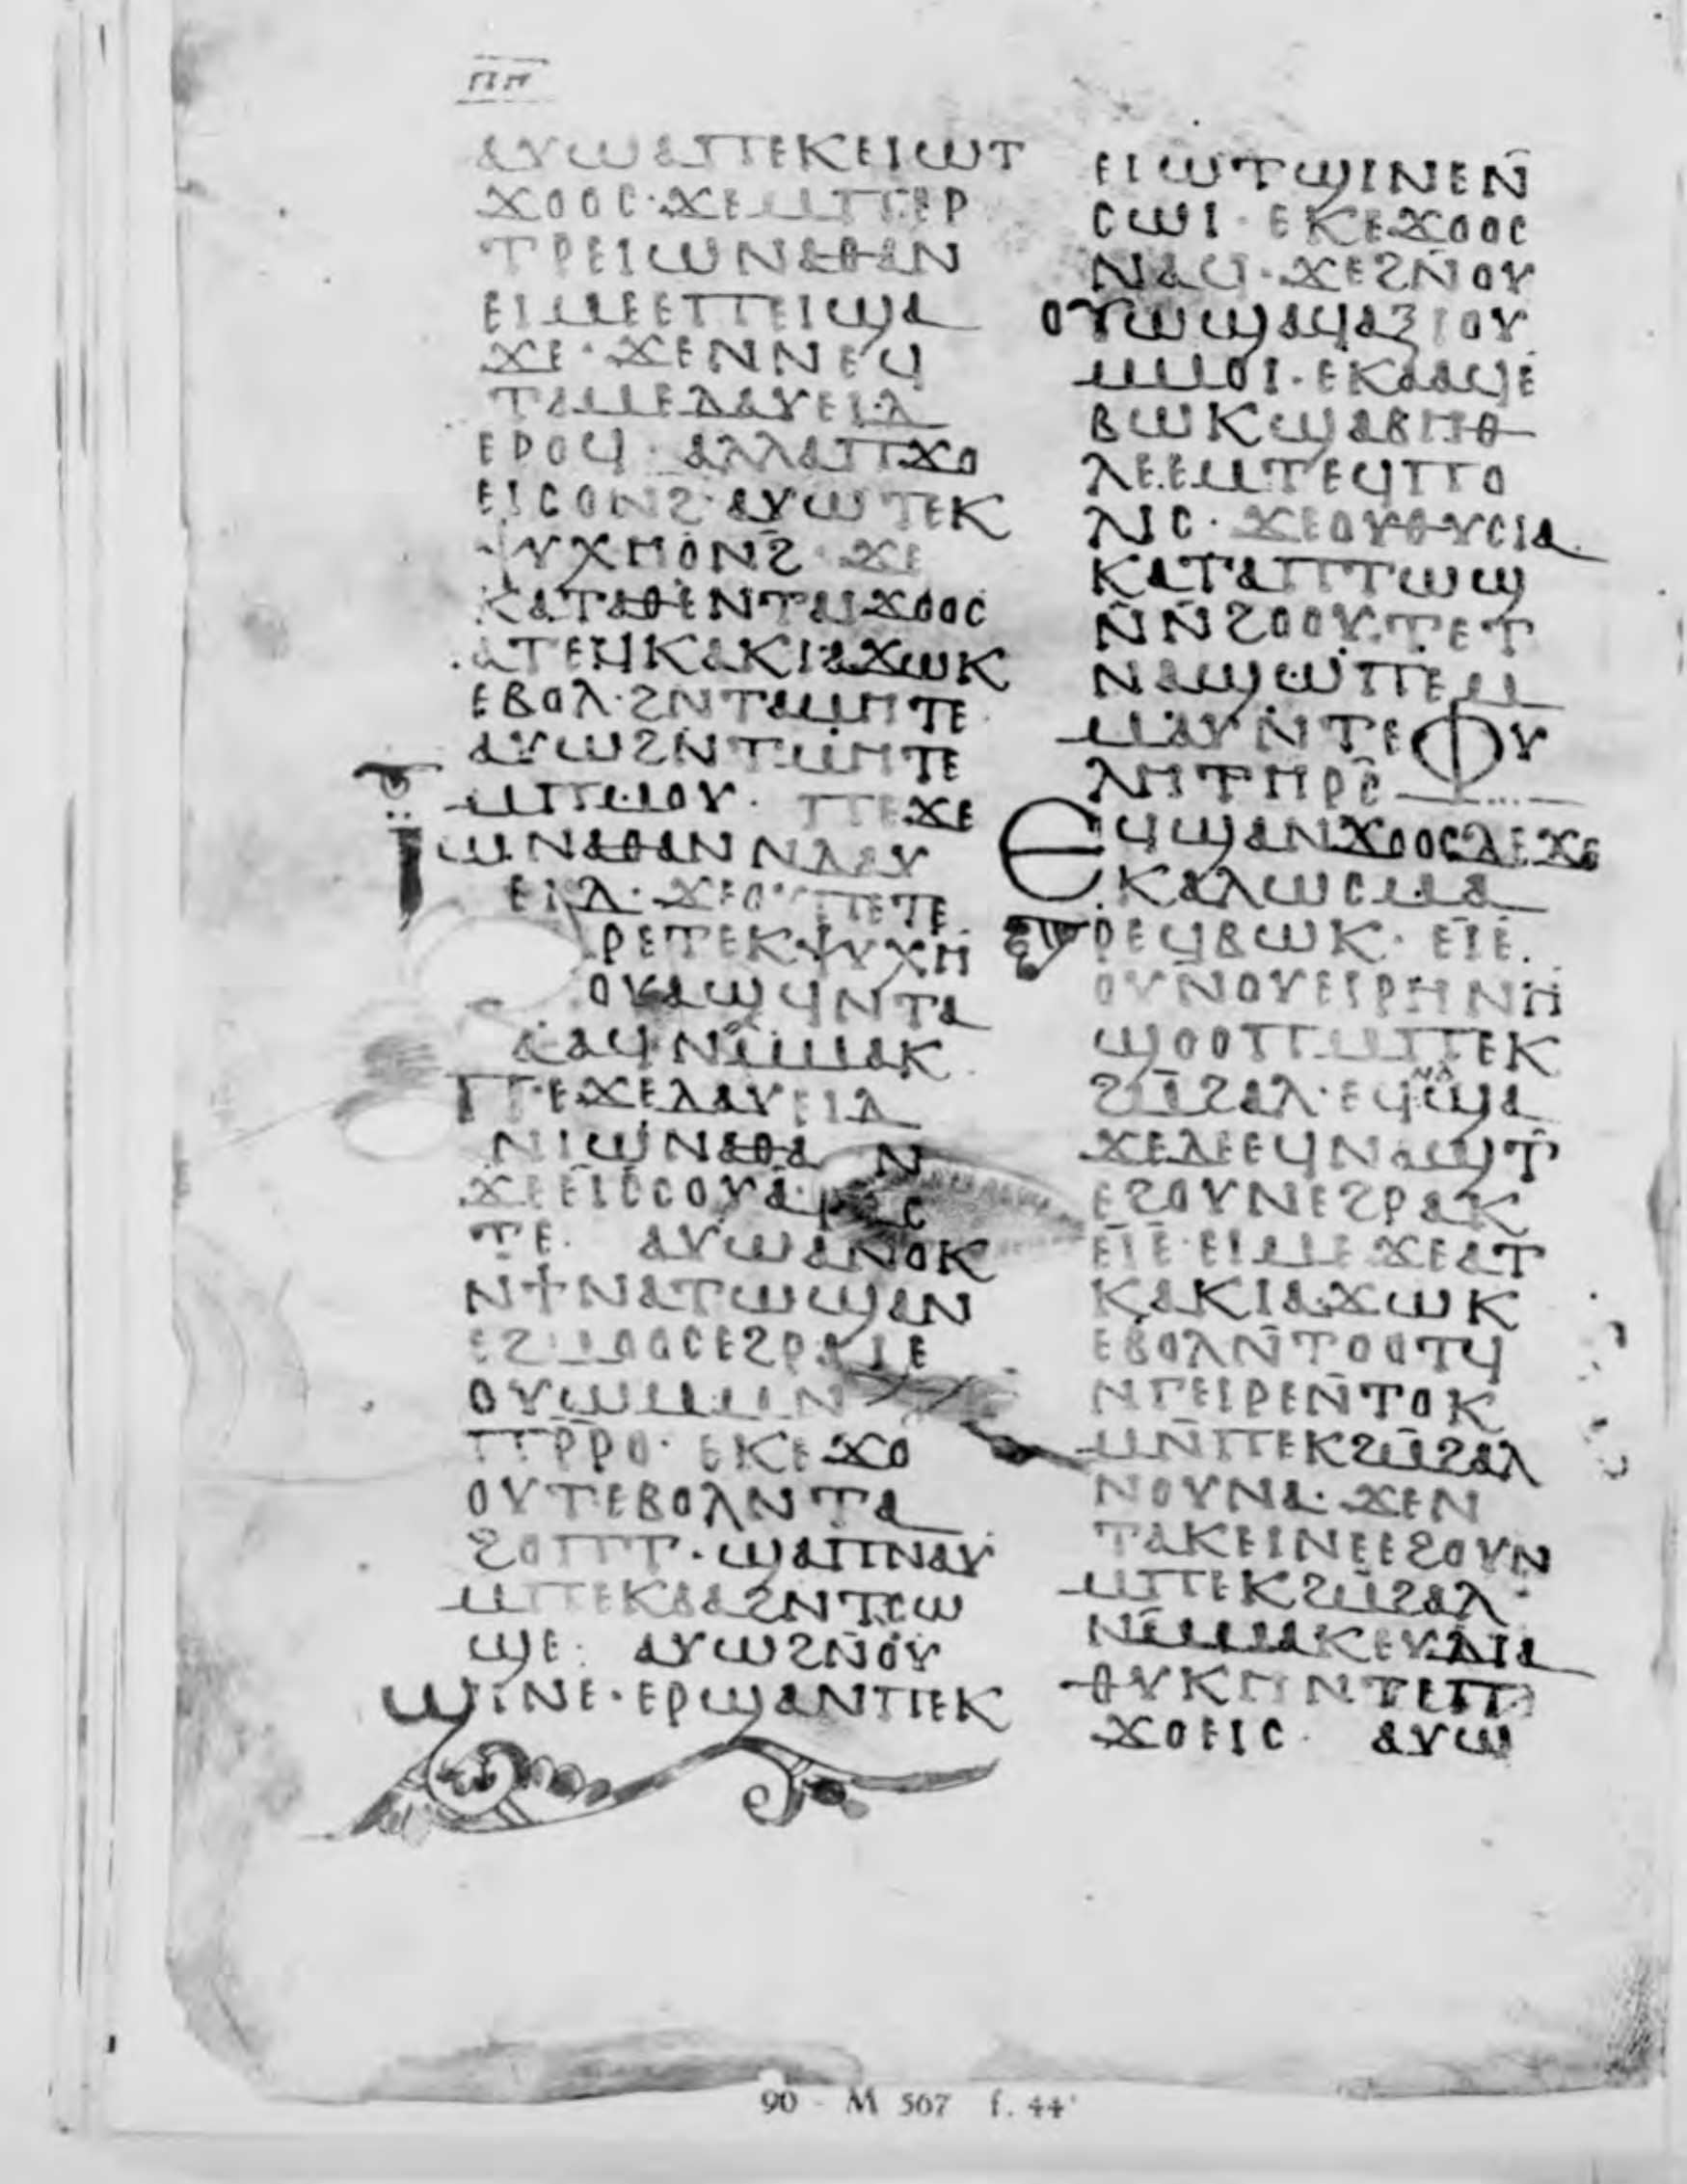 ⲡⲏ
ⲁⲩⲱⲁⲡⲉⲕⲉⲓⲱⲧ
ϫⲟⲟⲥ·ϫⲉⲙⲡⲣ̅
ⲧⲣⲉⲓⲱⲛⲁⲑⲁⲛ
ⲉⲓⲙⲉⲉⲡⲉⲓϣⲁ
ϫⲉ·ϫⲉⲛⲛⲉϥ
ⲧⲁⲙⲉⲇⲁⲩⲉⲓⲇ
ⲉⲣⲟϥ·ⲁⲗⲗⲁⲡϫⲟ
ⲉⲓⲥⲟⲛϩ·ⲁⲩⲱⲧⲉⲕ
ⲯⲩⲭⲏⲟⲛϩ·ϫⲉ
ⲕⲁⲧⲁⲑⲉⲛⲧⲁⲓϫⲟⲟⲥ
ⲁⲧⲉϥⲕⲁⲕⲓⲁϫⲱⲕ
ⲉⲃⲟⲗ·ϩⲛⲧⲁⲙⲏⲧⲉ
ⲁⲩⲱϩⲛⲧⲙⲏⲧⲉ
ⲙⲡⲙⲟⲩ· ⲡⲉϫⲉ
ⲓ̈ⲱⲛⲁⲑⲁⲛⲛⲇⲁⲩ
ⲉⲓⲇ·ϫⲉⲟⲩⲡⲉⲧⲉ
ⲣⲉⲧⲉⲕⲯⲩⲭⲏ
ⲟⲩⲁϣϥⲛⲧⲁ
ⲁⲁϥⲛⲙ̅ⲙⲁⲕ
ⲡⲉϫⲉⲇⲁⲩⲉⲓⲇ
ⲛⲓⲱⲛⲁⲑⲁⲛ
ϫⲉⲉⲓⲥⲥⲟⲩⲁ
ⲧⲉ· ⲁⲩⲱⲁⲛⲟⲕ
ⲛϯⲛⲁⲧⲱϣⲁⲛ
ⲉϩⲙⲟⲟⲥⲉϩⲣⲁⲓⲉ
ⲟⲩⲱⲙⲙⲛ
ⲡⲣ̅ⲣⲟ·ⲉⲕⲉϫⲟ
ⲟⲩⲧⲉⲃⲟⲗⲛⲧⲁ
ϩⲟⲡⲧ·ϣⲁⲡⲛⲁⲩ
ⲙⲡⲉⲕⲁⲁϩⲛⲧⲥⲱ
ϣⲉ· ⲁⲩⲱϩⲛ̅ⲟⲩ
ϣⲓⲛⲉ·ⲉⲣϣⲁⲛⲡⲉⲕ
ⲉⲓⲱⲧϣⲓⲛⲉⲛ̅
ⲥⲱⲓ·ⲉⲕⲉϫⲟⲟⲥ
ⲛⲁϥ·ϫⲉϩⲛ̅ⲟⲩ
ⲟⲩⲱϣⲁϥⲁⲝⲓⲟⲩ
ⲙⲙⲟⲓ·ⲉⲕⲁⲁϥⲉ
ⲃⲱⲕϣⲁⲃⲏⲑ
ⲗⲉⲉⲙⲧⲉϥⲡⲟ
ⲗⲓⲥ·ϫⲉⲟⲩⲑⲩⲥⲓⲁ
ⲕⲁⲧⲁⲡⲧⲱϣ
ⲛ̅ⲛ̅ϩⲟⲟⲩ·ⲧⲉⲧ
ⲛⲁϣⲱⲡⲉⲙ
ⲙⲁⲩⲛⲧⲉⲫⲩ
ⲗⲏⲧⲏⲣⲥ̅
ⲉϥϣⲁⲛϫⲟⲟⲥⲇⲉϫⲉ
ⲕⲁⲗⲱⲥⲙⲁ
ⲣⲉϥⲃⲱⲕ·ⲉⲓ̈ⲉ·
ⲟⲩⲛⲟⲩⲉⲓⲣⲏⲛⲏ
ϣⲟⲟⲡⲙⲡⲉⲕ
ϩⲙ̅ϩⲁⲗ·ⲉϥⲛⲁϣⲁ
ϫⲉⲇⲉⲉϥⲛⲁϣⲧ
ⲉϩⲟⲩⲛⲉϩⲣⲁⲕ
ⲉⲓ̈ⲉ·ⲉⲓⲙⲉϫⲉⲁⲧ
ⲕⲁⲕⲓⲁϫⲱⲕ
ⲉⲃⲟⲗⲛ̅ⲧⲟⲟⲧϥ
ⲛⲅⲉⲓⲣⲉⲛ̅ⲧⲟⲕ
ⲙⲛ̅ⲡⲉⲕϩⲙ̅ϩⲁⲗ
ⲛⲟⲩⲛⲁ·ϫⲉⲛ
ⲧⲁⲕⲉⲓⲛⲉⲉϩⲟⲩⲛ
ⲙⲡⲉⲕϩⲙ̅ϩⲁⲗ
ⲛⲙ̅ⲙⲁⲕⲉⲩⲇⲓⲁ
ⲑⲩⲕⲏⲛⲧⲉⲡ
ϫⲟⲉⲓⲥ· ⲁⲩⲱ
90 - M 567 f. 44ᵛ